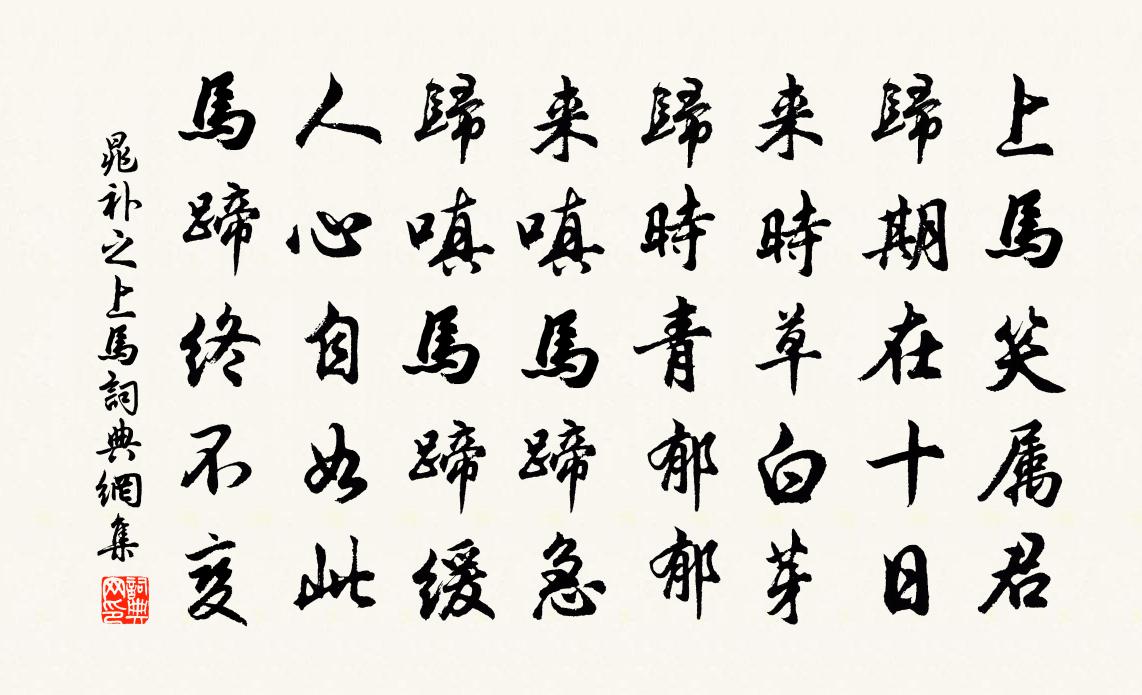 上馬笑属君
歸期在十日
来時草白芽
歸時青郁郁
来嗔馬蹄急
歸嗔馬蹄緩
人心自如此
馬蹄終不変
晁补之上馬詞典網集
詞典网印